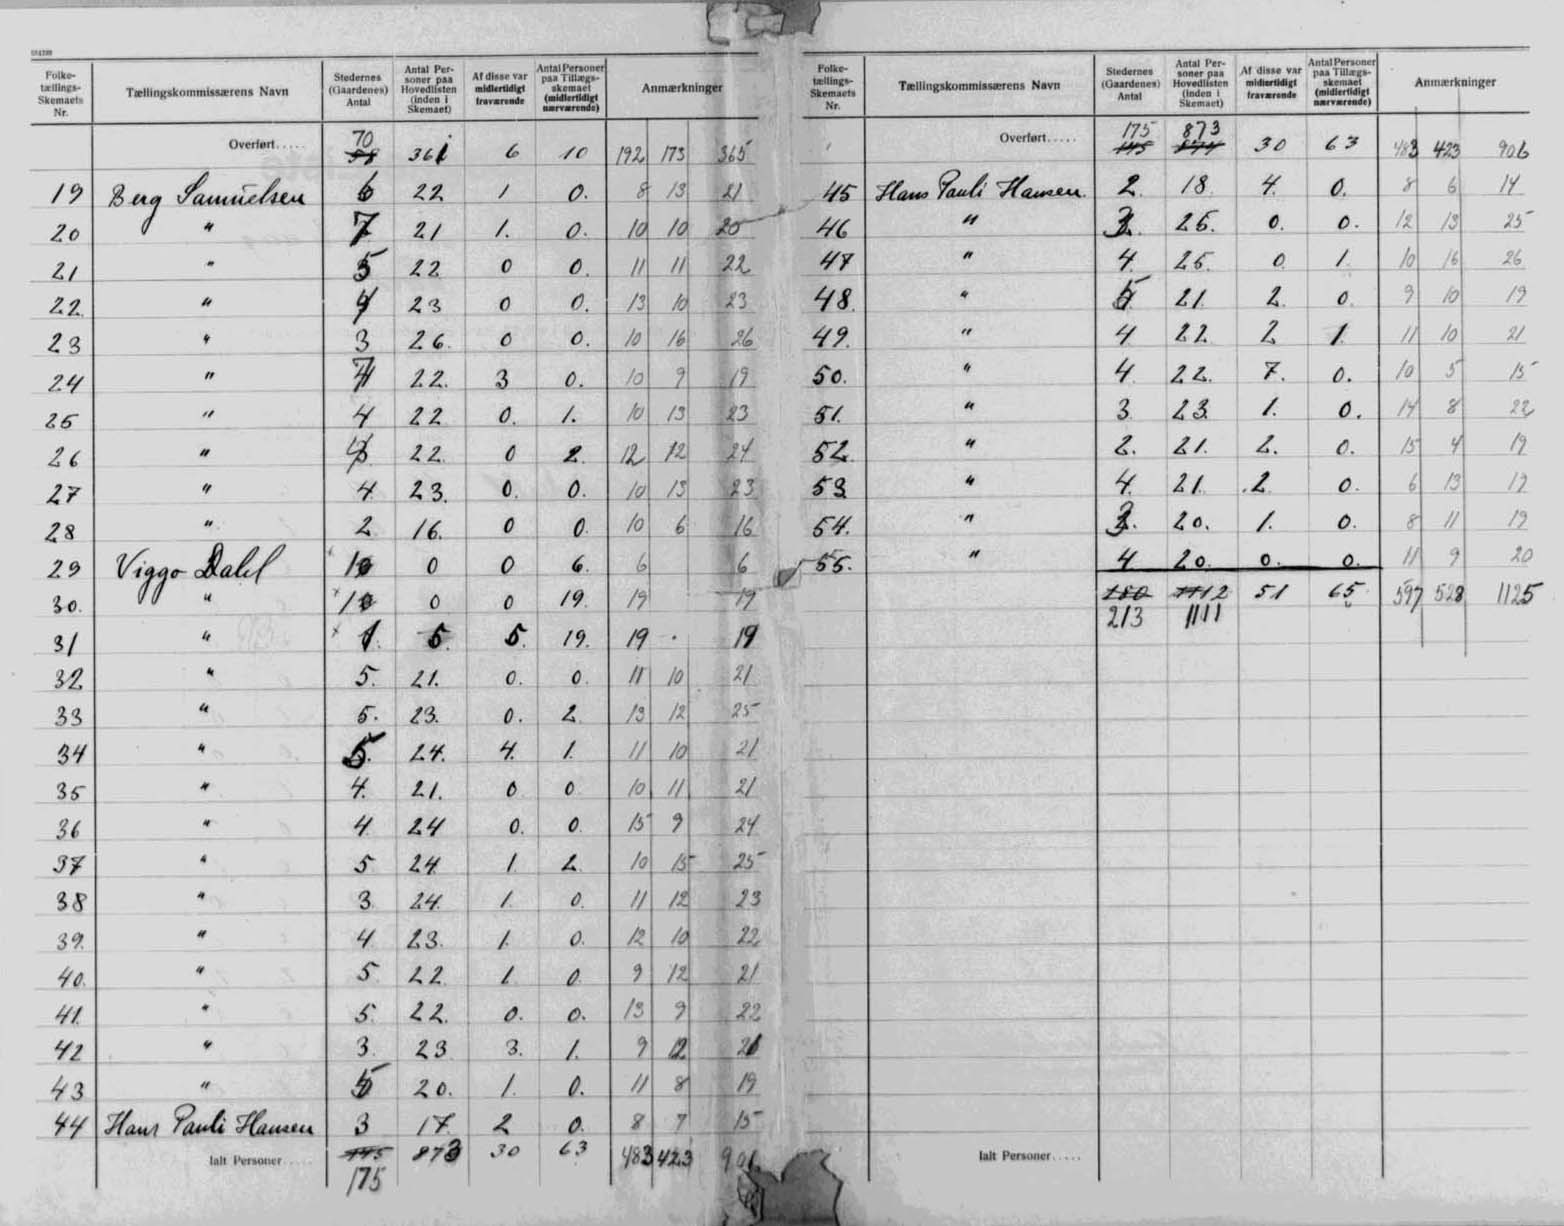 Folke-tællings-Skemaets Nr. Tællingskommissærens Navn Stedernes (Gaardenes) Antal Antal Personer paa Hovedlisten (inden i Skemaet) Af disse var midlertidigt fraværende Antal Personer paa Tillægs-skemaet (midlertidigt nærværende) Anmærkninger
Overført..... 70 361 6 10 192 173 365
19 Berg Samuelsen 6 22 1 0. 8 13 21
20 " 7 21 1. 0. 10 10 20
21 " 5 22 0 0. 11 11 22
22. " 4 23 0 0. 13 10 23
23 " 3 26. 0 0. 10 16 26
24 " 7 22. 3 0. 10 9 19
25 " 4 22 0. 1. 10 13 23
26 " 22. 0 2. 12 12 24
27 " 4. 23. 0. 0. 10 13 23
28 " 2 16. 0 0 10 6 16
29 Viggo Dahl 0 0 6. 6 6
30. " 0 0 19. 19 19
31 " 1. 5. 5. 19. 19 19
32 " 5. 21. 0. 0. 11 10 21
33 " 5. 23. 0. 2 13 12 25
34 " 5. 24. 4. 1. 11 10 21
35 " 4. 21. 0 0 10 11 21
36 " 4 24 0. 0. 15 9 24
37 " 5 24 1 2 10 15 25
38 " 3 24. 1. 0. 11 12 23
39. " 4 23. 1. 0. 12 10 22
40. " 5 22 1 0 9 12 21
41. " 5. 22. 0. 0. 13 9 22
42 " 3. 23 3. 1. 9 12 21
43 " 5 20. 1. 0. 11 8 19
44 Hans Pauli Hansen 3 17. 2 0. 8 7 15
Ialt Personer..... 145 873 30 63 483 423 906
175
Folke-tællings-Skemaets Nr. Tællingskommissærens Navn Stedernes (Gaardenes) Antal Antal Personer paa Hovedlisten (inden i Skemaet) Af disse var midlertidigt fraværende Antal Personer paa Tillægs-skemaet (midlertidigt nærværende) Anmærkninger
175 873
Overført..... 145 874 30 63 483 423 906
45 Hans Pauli Hansen. 2. 18. 4. 0. 8 6 14
46 " 3. 25. 0. 0. 12 13 25
47 " 4. 25. 0. 1. 10 16 26
48. " 5 21. 2. 0. 9 10 19
49. " 4 22 2 1. 11 10 21
50. " 4. 22. 7. 0. 10 5 15
51. " 3. 23. 1. 0. 14 8 22
52. " 2. 21. 2. 0. 15 4 19
53. " 4. 21. 2 0. 6 13 19
54. " 3. 20. 1. 0. 8 11 19
55. " 4 20. 0. 0. 11 9 20
180 1112 51 65 597 528 1125
213 1111
Ialt Personer.....